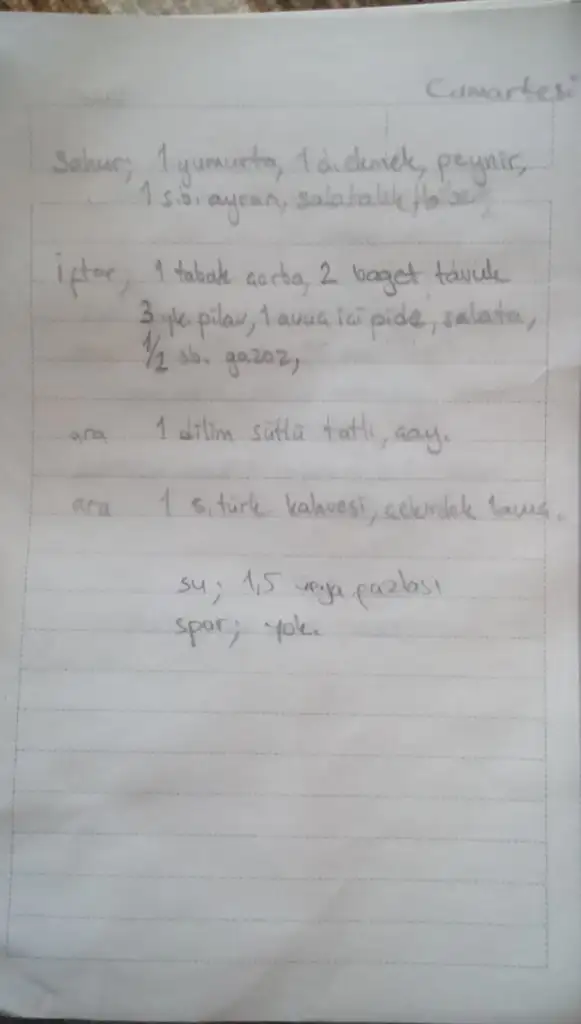 Cumartesi
Sahur; 1 yumurta, 1 d. ekmek, peynir,
1 s.b. ayran, salatalık
İftar, 1 tabak çorba, 2 baget tavuk
3 yk. pilav, 1 avuç içi pide, salata,
1/2 sb. gazoz,
ara 1 dilim sütlü tatlı, çay.
ara 1 s. türk kahvesi, çekirdek 1 avuç.
su; 1,5 veya fazlası
spor; yok.